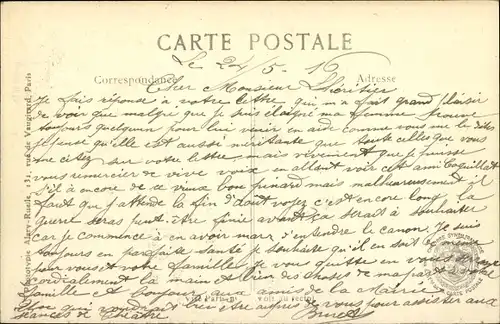 CARTE POSTALE
Le 24/5-16
Correspondance
Adresse
Cher Monsieur Lhéritier
Je fais réponse à votre lettre qui m'a fait grand plaisir
de voir que malgré que je suis éloigné ma femme trouve
toujours quelqu'un pour lui venir en aid comme vous me le dites
je pense qu'elle est aussi méritante que toute celles que vous
me citez sur votre lettre mais vivement que je puisse
vous remercier de vive voix en allant voir cet ami Coquillat
s'il à encore de ce vieux bon pinard mais malheureusement il
faut que j'attende la fin d'avoit voyez c'est encore long la
guerre seras peut être finie avant sa serait à souhaiter
car je commence à en avoir marre d'entendre le canon. Je suis
toujours en parfaite santé je souhaite qu'il en soit de
pour vous et votre famille je vous quitte en vous serrant
cordialement la main et bien des choses de ma part à votre
famille et bonjour aux amis de la Mairie
qui bien être auprès de vous pour assister aux
séances de théatre
Phototypie A. rue de Vaugirard, Paris